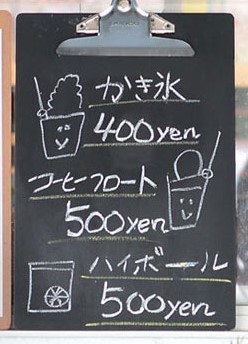 かき氷
400yen
コーヒーフロート
500yen
ハイボール
500yen